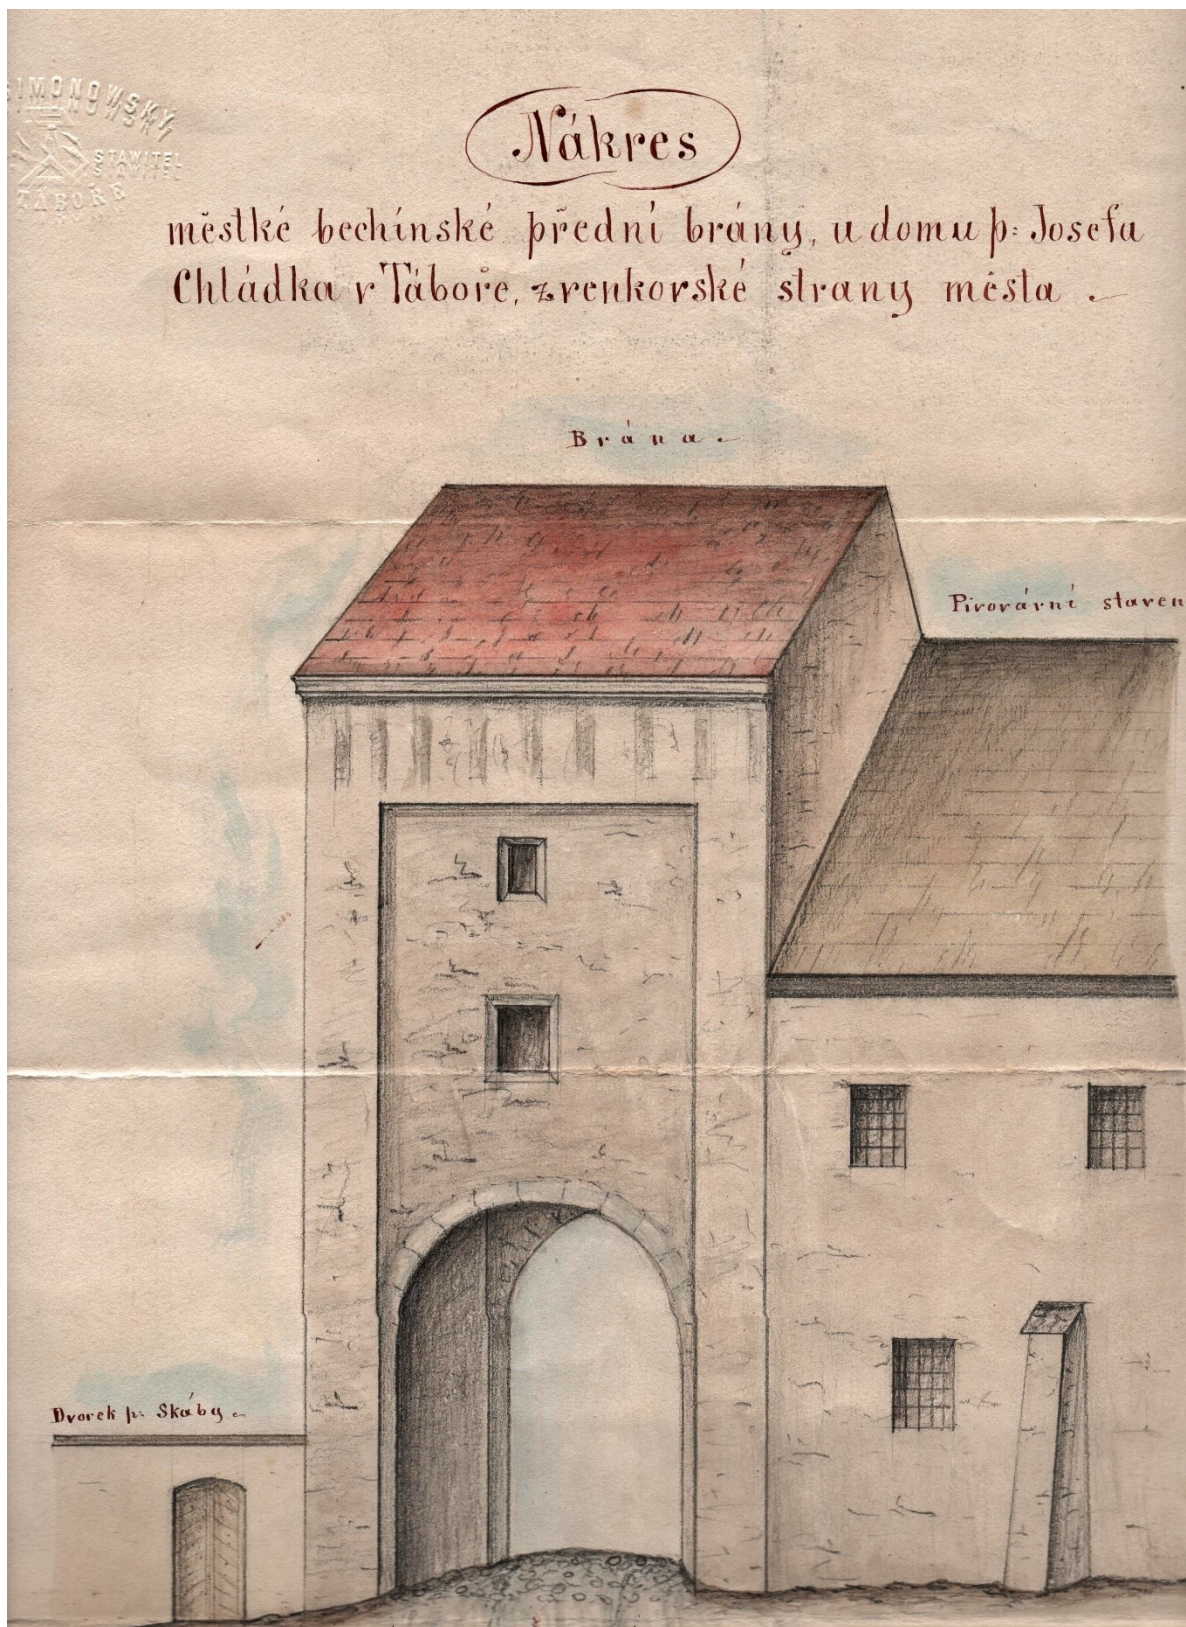 SIMONOWSKÝ
STAWITEL
TÁBOŘE
Nákres
městké bechínské přední brány, u domu p: Josefa
Chládka v Táboře, z venkovské strany města.
Brána.
Pivovární staven
Dvorek p: Skáby.